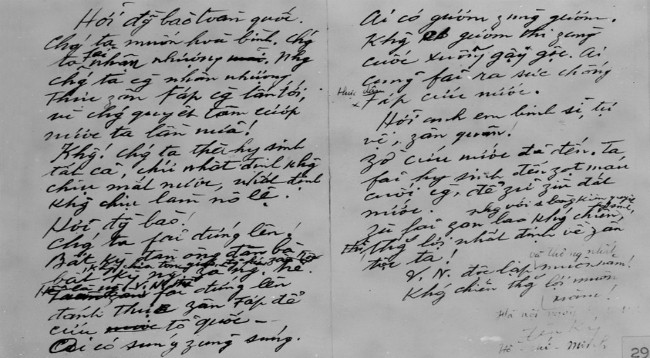 Hỡi đg bào toàn quốc.
Chg ta muốn hoà bình, chg
ta fải nhân nhượng. Nhg
chg ta cg nhân nhượng,
thực zân Fáp cg lấn tới,
vì chg quyết tâm cướp
nước ta lần nữa!
Khg! chg ta thà hy sinh
tất cả, chứ nhất định khg
chịu mất nước, nhất định
khg chịu làm nô lệ.
Hỡi đg bào!
Chg ta fải đứng lên!
Bất kỳ đàn ông đàn bà,
bất kỳ
fải đứng lên
đánh thực zân Fáp để
cứu tổ quốc —
Ai có súng zùng súng.
Ai có gươm zùng gươm.
Khg có gươm thì zùng
cuốc xuổng gậy gộc. Ai
cũng fải ra sức chống
thực zân Fáp cứu nước.
Hỡi anh em binh sĩ, tự
vệ, zân quân!
Zờ cứu nước đã đến. Ta
fải hy sinh đến zọt máu
cuối cg, để zữ zìn đất
nước.
Zù fải zan lao khg chiến,
thg lợi nhất định về zân
tộc ta!
V.N. độc lập và thống nhất
muôn năm!
Khg chiến thg lợi muôn
năm!
Hà nội
Hồ chí Minh
29